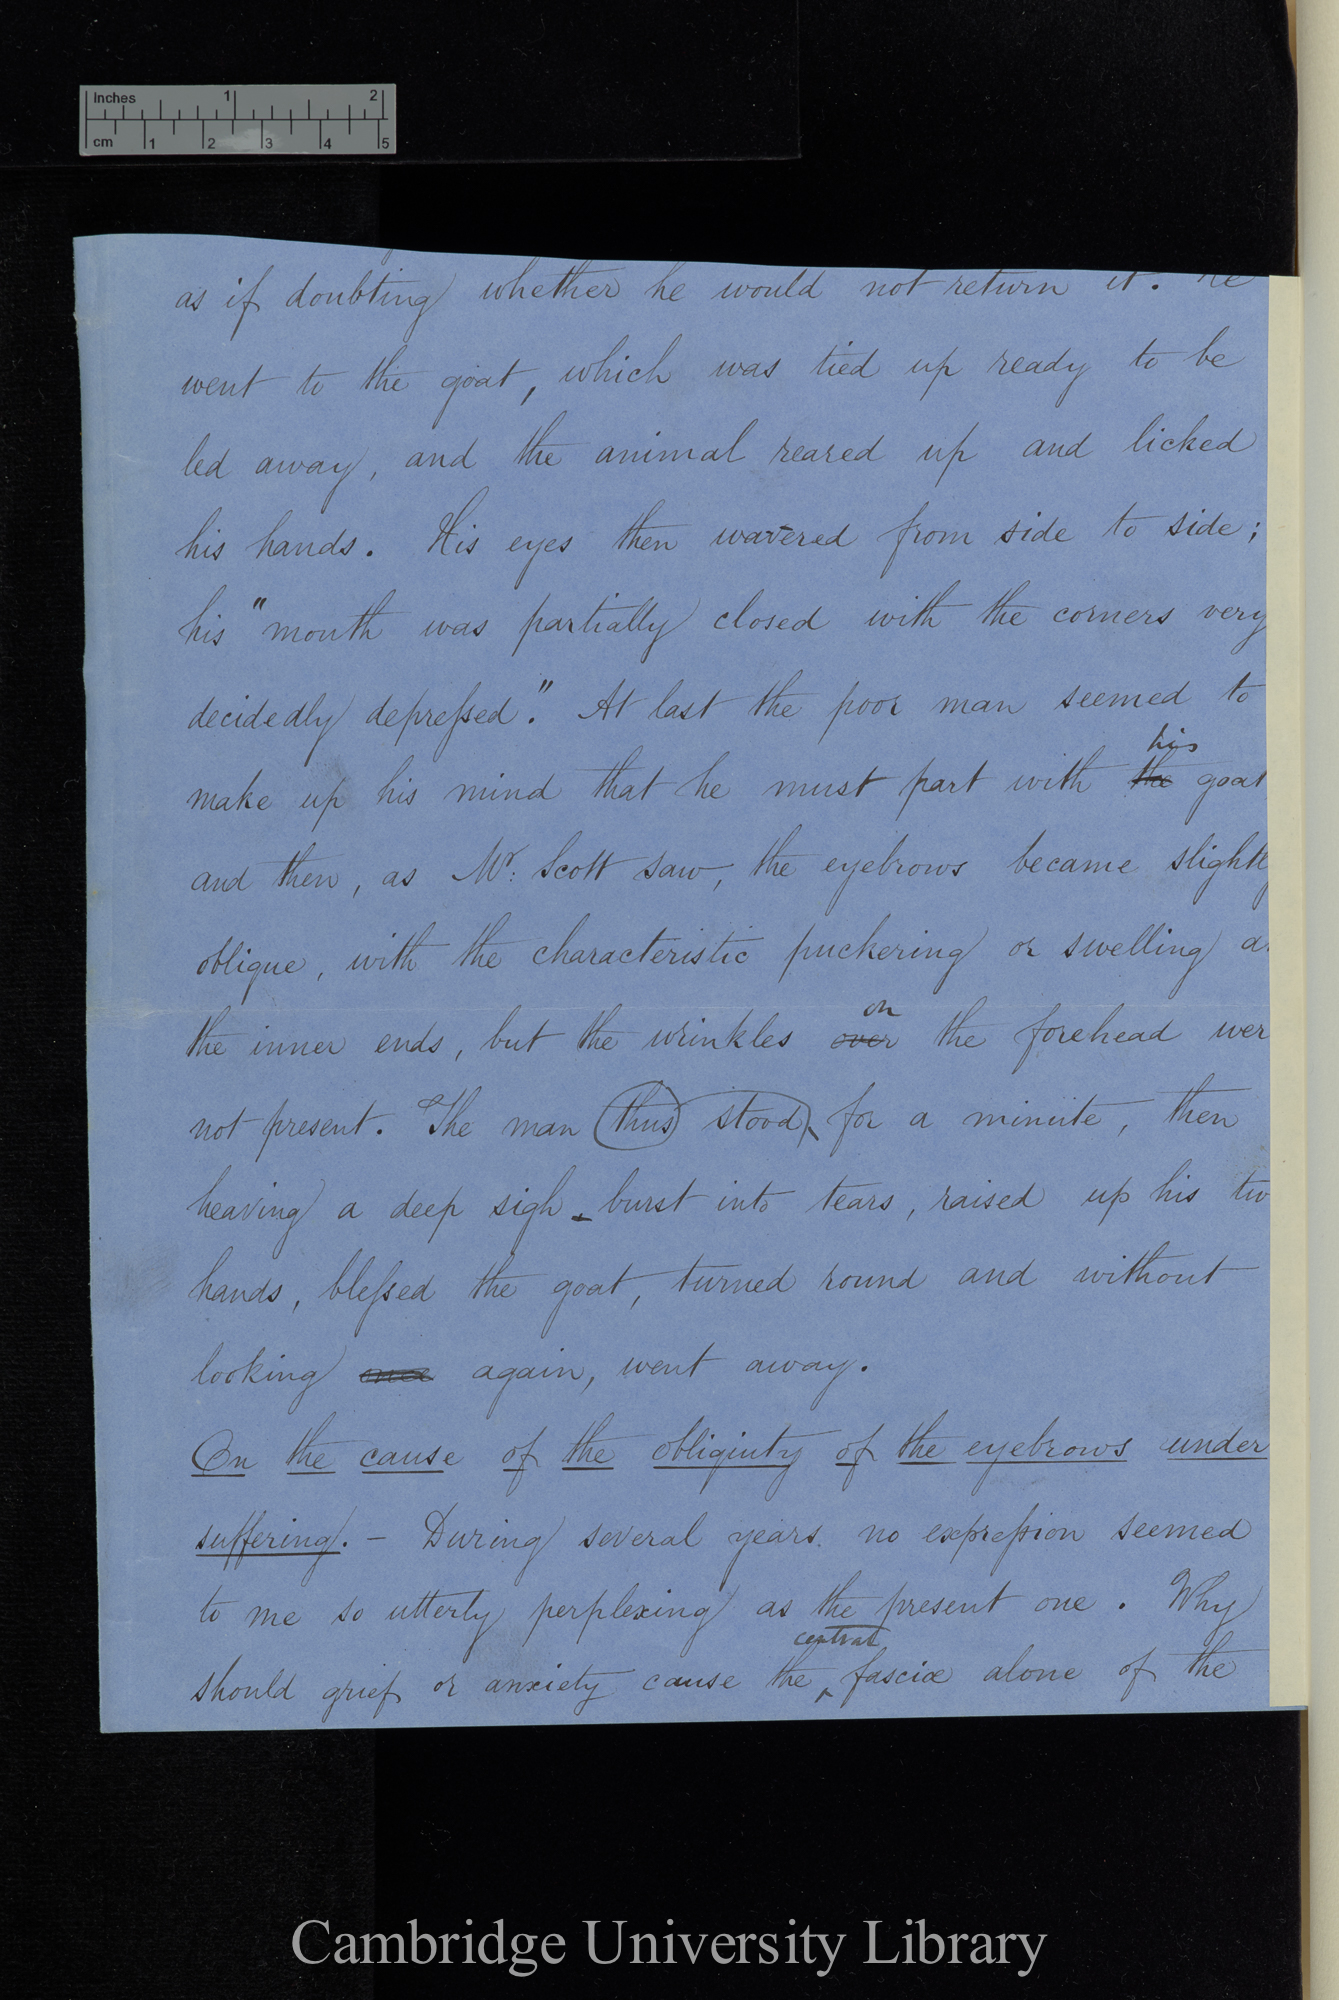 Inches 1 2
cm 1 2 3 4 5
as if doubting whether he would not return it. He
went to the goat, which was tied up ready to be
led away, and the animal reared up and licked
his hands. His eyes then wavered from side to side;
his "mouth was partially closed with the corners very
decidedly depressed." At last the poor man seemed to
his
make up his mind that he must part with the goat
and then, as Mr. Scott saw, the eyebrows became slightly
oblique, with the characteristic puckering or swelling a
on
the inner ends, but the wrinkles over the forehead wer
not present. The man thus stood for a minute, then
heaving a deep sigh burst into tears, raised up his tw
hands, blessed the goat, turned round and without
looking again, went away.
On the cause of the obliquity of the eyebrows under
suffering. – During several years no expression seemed
to me so utterly perplexing as the present one. Why
central
should grief or anxiety cause the ‸ fasciæ alone of the
Cambridge University Library